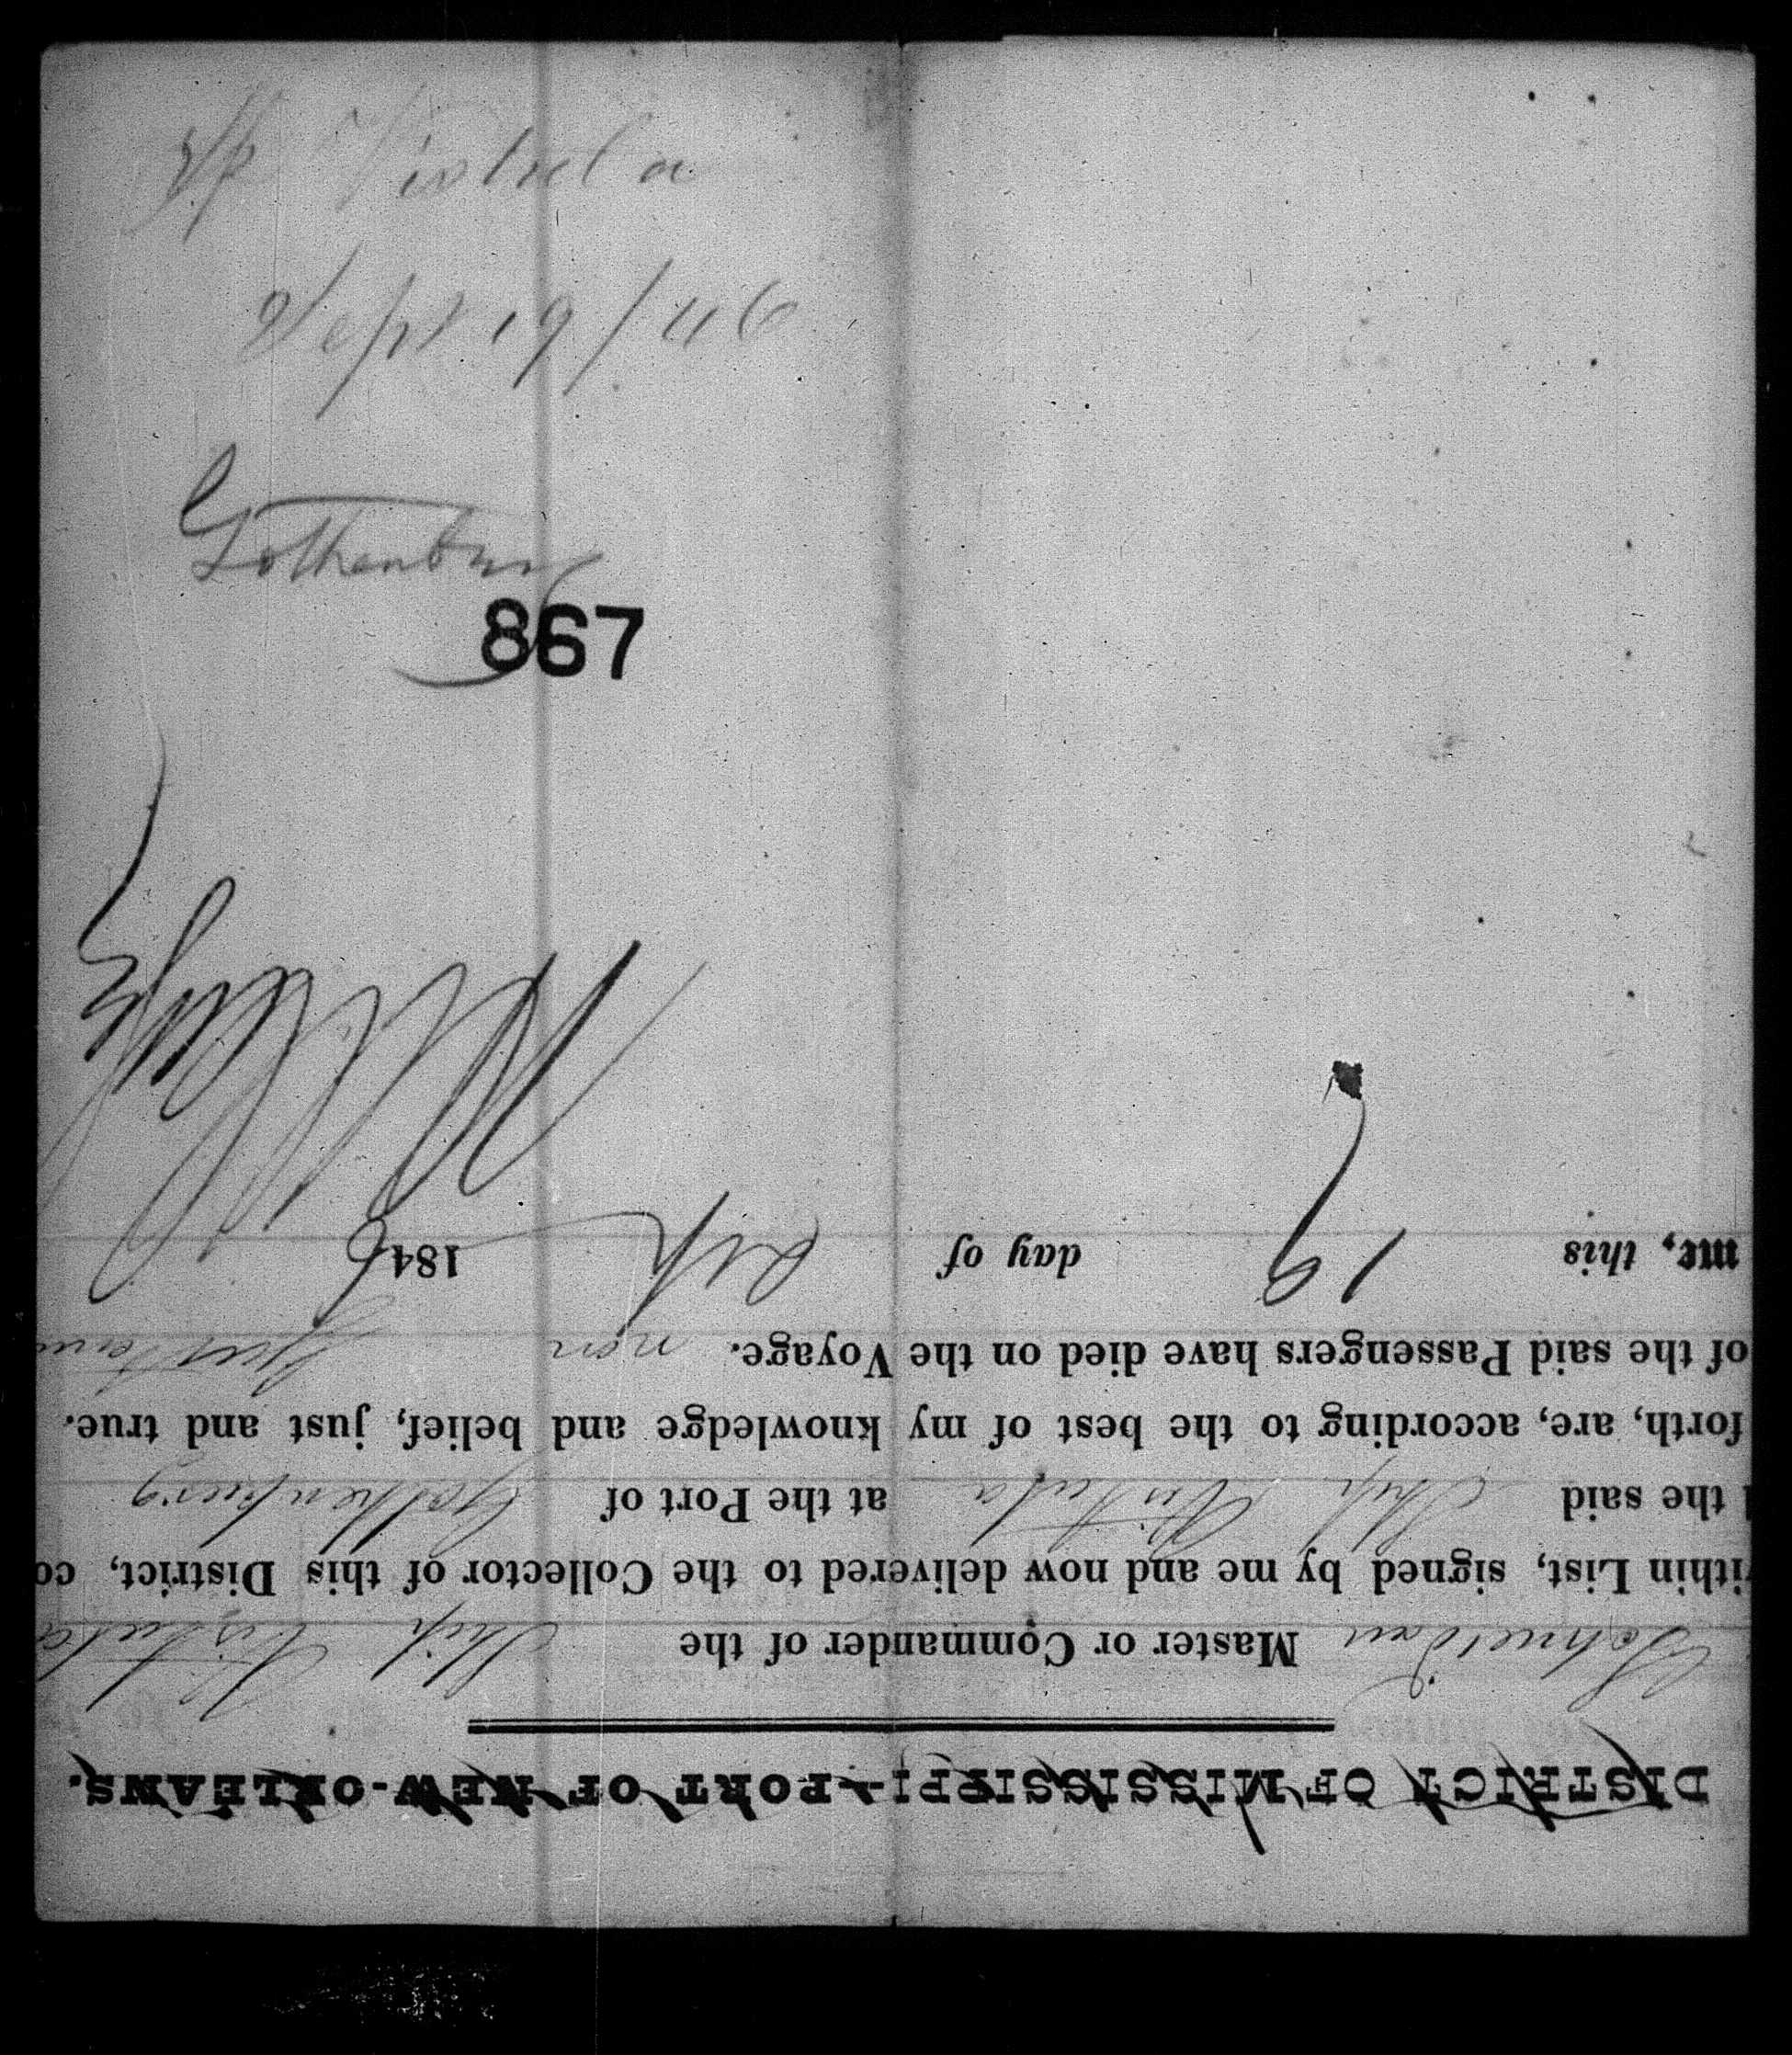 Sept 19/46
Gothenburg
867
DISTRICT OF MISSISSIPPI—PORT OF NEW-ORLEANS.
Master or Commander of the Ship
ithin List, signed by me and now delivered to the Collector of this District, co
the said Ship at the Port of Gothenburg
forth, are, according to the best of my knowledge and belief, just and true.
of the said Passengers have died on the Voyage.
me, this 19 day of Sep 1846